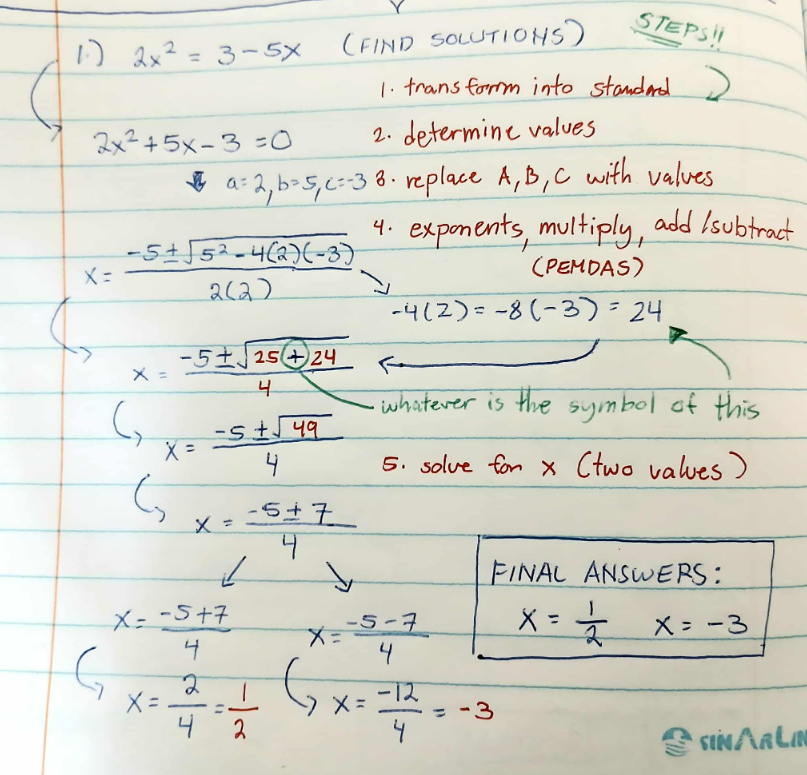 1.) 2x² = 3 - 5x (FIND SOLUTIONS) STEPS!!
1. transform into standard
2x² + 5x - 3 = 0
2. determine values
a=2, b=5, c=-3
3. replace A, B, C with values
4. exponents, multiply, add / subtract
(PEMDAS)
x = (-5 ± √(5² - 4(2)(-3))) / 2(2)
-4(2) = -8(-3) = 24
x = (-5 ± √(25 + 24)) / 4
whatever is the symbol of this
x = (-5 ± √49) / 4
5. solve for x (two values)
x = (-5 ± 7) / 4
FINAL ANSWERS:
x = 1/2 x = -3
x = (-5 + 7) / 4 x = (-5 - 7) / 4
x = 2/4 = 1/2 x = -12/4 = -3